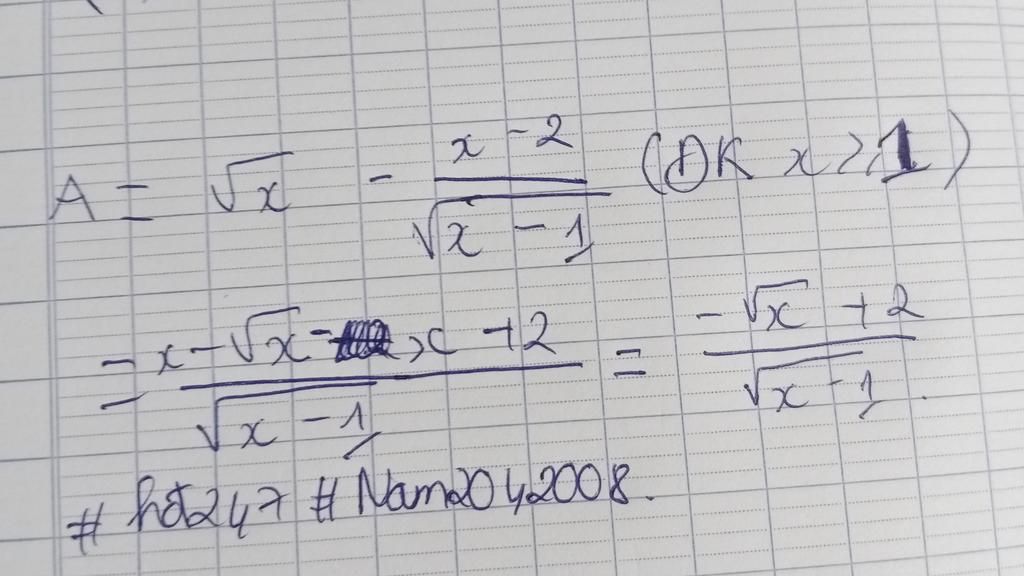 A = √x - (x - 2)/√(x - 1) (ĐK x ≥ 1)
= (x - √x - x + 2)/√(x - 1) = (-√x + 2)/√(x - 1).
# hdt247 # Nam2042008.